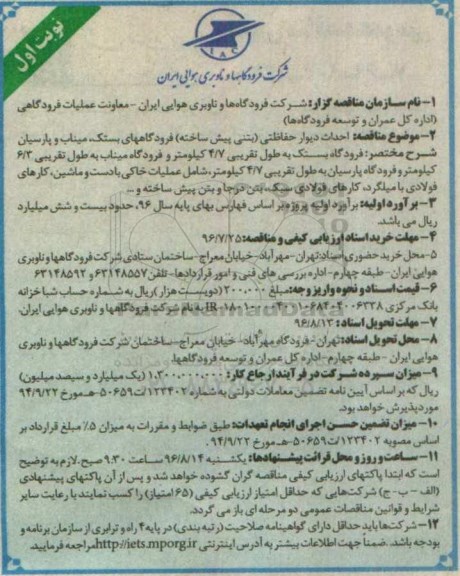 نوبت اول
IAC
شرکت فرودگاهها و ناوبری هوایی ایران
۱- نام سازمان مناقصه گزار: شرکت فرودگاه‌ها و ناوبری هوایی ایران - معاونت عملیات فرودگاهی
(اداره کل عمران و توسعه فرودگاه‌ها)
۲- موضوع مناقصه: احداث دیوار حفاظتی (بتنی پیش ساخته) فرودگاههای بستک، میناب و پارسیان
شرح مختصر: فرودگاه بستک به طول تقریبی ۴/۷ کیلومتر و فرودگاه میناب به طول تقریبی ۶/۳
کیلومتر و فرودگاه پارسیان به طول تقریبی ۴/۷ کیلومتر، شامل عملیات خاکی با دست و ماشین، کارهای
فولادی با میلگرد، کارهای فولادی سبک، بتن درجا و بتن پیش ساخته و ...
۳- برآورد اولیه: برآورد اولیه پروژه بر اساس فهارس بهای پایه سال ۹۶، حدود بیست و شش میلیارد
ریال می باشد.
۴- مهلت خرید اسناد ارزیابی کیفی و مناقصه: ۹۶/۷/۲۵
۵- محل خرید حضوری اسناد: تهران- مهرآباد- خیابان معراج- ساختمان ستادی شرکت فرودگاهها و ناوبری
هوایی ایران- طبقه چهارم- اداره بررسی های فنی و امور قراردادها- تلفن ۶۳۱۴۸۵۵۷ و ۶۳۱۴۸۵۹۲
۶- قیمت اسناد و نحوه واریز وجه: مبلغ ۲۰۰.۰۰۰ (دویست هزار) ریال به شماره حساب شبا خزانه
بانک مرکزی به نام شرکت فرودگاهها و ناوبری هوایی ایران.
۷- مهلت تحویل اسناد: ۹۶/۸/۱۳
۸- محل تحویل اسناد: تهران- فرودگاه مهرآباد- خیابان معراج- ساختمان شرکت فرودگاهها و ناوبری
هوایی ایران - طبقه چهارم- اداره کل عمران و توسعه فرودگاهها.
۹- میزان سپرده شرکت در فرآیند ارجاع کار: ۱.۳۰۰.۰۰۰.۰۰۰ (یک میلیارد و سیصد میلیون)
ریال که بر اساس آیین نامه تضمین معاملات دولتی به شماره ۱۲۳۴۰۲/ت۵۰۶۵۹هـ مورخ ۹۴/۹/۲۲
مورد پذیرش خواهد بود.
۱۰- میزان تضمین حسن اجرای انجام تعهدات: طبق ضوابط و مقررات به میزان ۵٪ مبلغ قرارداد بر
اساس مصوبه ۱۲۳۴۰۲/ت۵۰۶۵۹هـ مورخ ۹۴/۹/۲۲.
۱۱- ساعت و روز و محل قرائت پیشنهادها: یکشنبه ۹۶/۸/۱۴ ساعت ۹.۳۰ صبح. لازم به توضیح
است که ابتدا پاکتهای ارزیابی کیفی مناقصه گران گشوده خواهد شد و پس از آن پاکتهای پیشنهادی
(الف - ب - ج) شرکت‌هایی که حداقل امتیاز ارزیابی کیفی (۶۵ امتیاز) را کسب نمایند با رعایت سایر
شرایط و قوانین مناقصات عمومی دو مرحله ای باز می گردد.
۱۲- شرکت‌ها باید حداقل دارای گواهینامه صلاحیت (رتبه بندی) در پایه ۴ راه و ترابری از سازمان برنامه و
بودجه باشد. ضمناً جهت اطلاعات بیشتر به آدرس اینترنتی http://iets.mporg.ir مراجعه فرمایید.